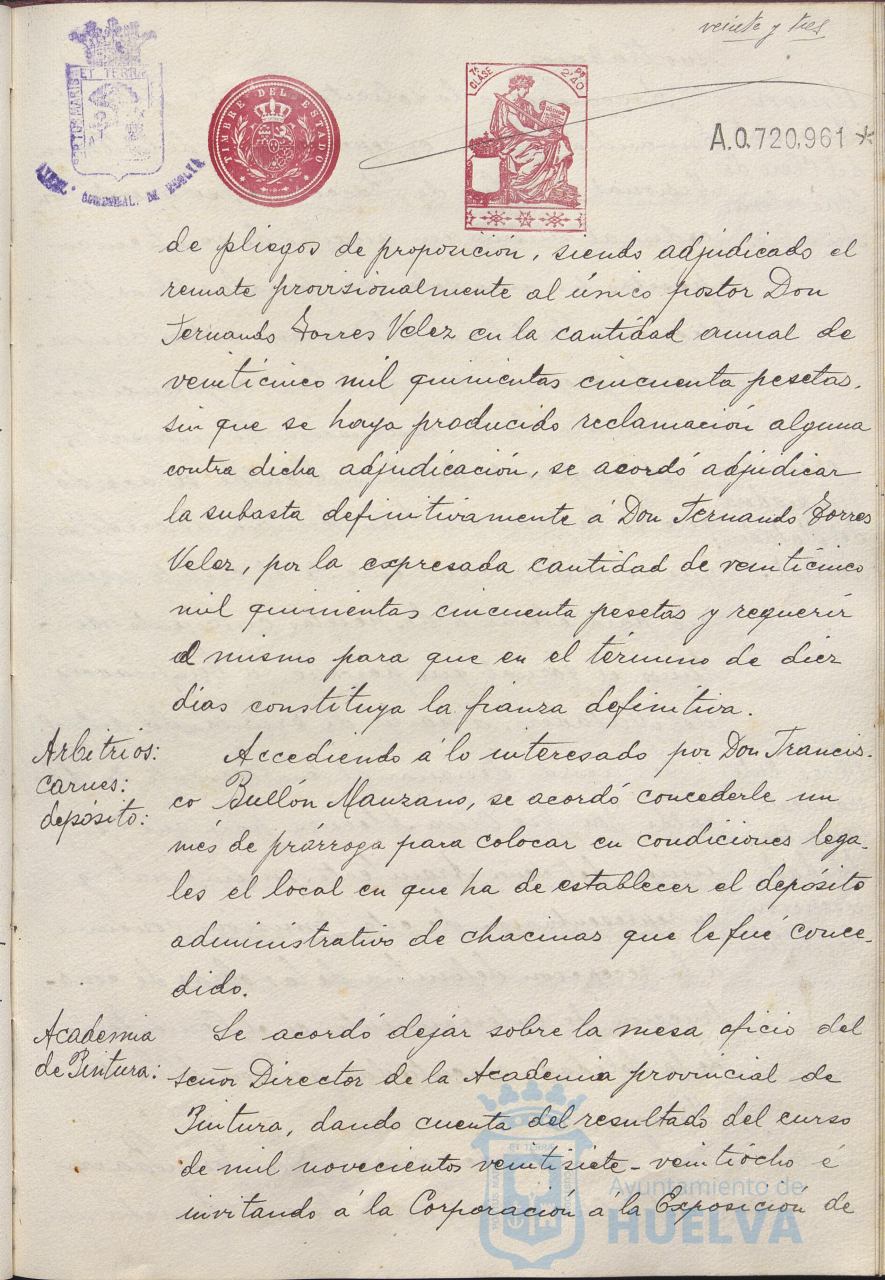 veinte y tres
PORTUS MARIS ET TERRÆ
AYUN. MUNICIPAL DE HUELVA
TIMBRE DEL ESTADO
7ª CLASE
2'40
A.0.720,961 *
de pliegos de proposición, siendo adjudicado el
remate provisionalmente al único postor Don
Fernando Torres Velez en la cantidad anual de
veinticinco mil quinientas cincuenta pesetas,
sin que se haya producido reclamación alguna
contra dicha adjudicación, se acordó adjudicar
la subasta definitivamente á Don Fernando Torres
Velez, por la expresada cantidad de veinticinco
mil quinientas cincuenta pesetas y requerir
al mismo para que en el término de diez
días constituya la fianza definitiva.
Arbitrios:
carnes:
depósito:
Accediendo á lo interesado por Don Francis-
co Bullón Manzano, se acordó concederle un
més de prórroga para colocar en condiciones lega-
les el local en que ha de establecer el depósito
administrativo de chacinas que le fué conce-
dido.
Academia
de Pintura:
Se acordó dejar sobre la mesa oficio del
señor Director de la Academia provincial de
Pintura, dando cuenta del resultado del curso
de mil novecientos veintisiete-veintiocho é
invitando á la Corporación a la Exposición de
Ayuntamiento de
HUELVA